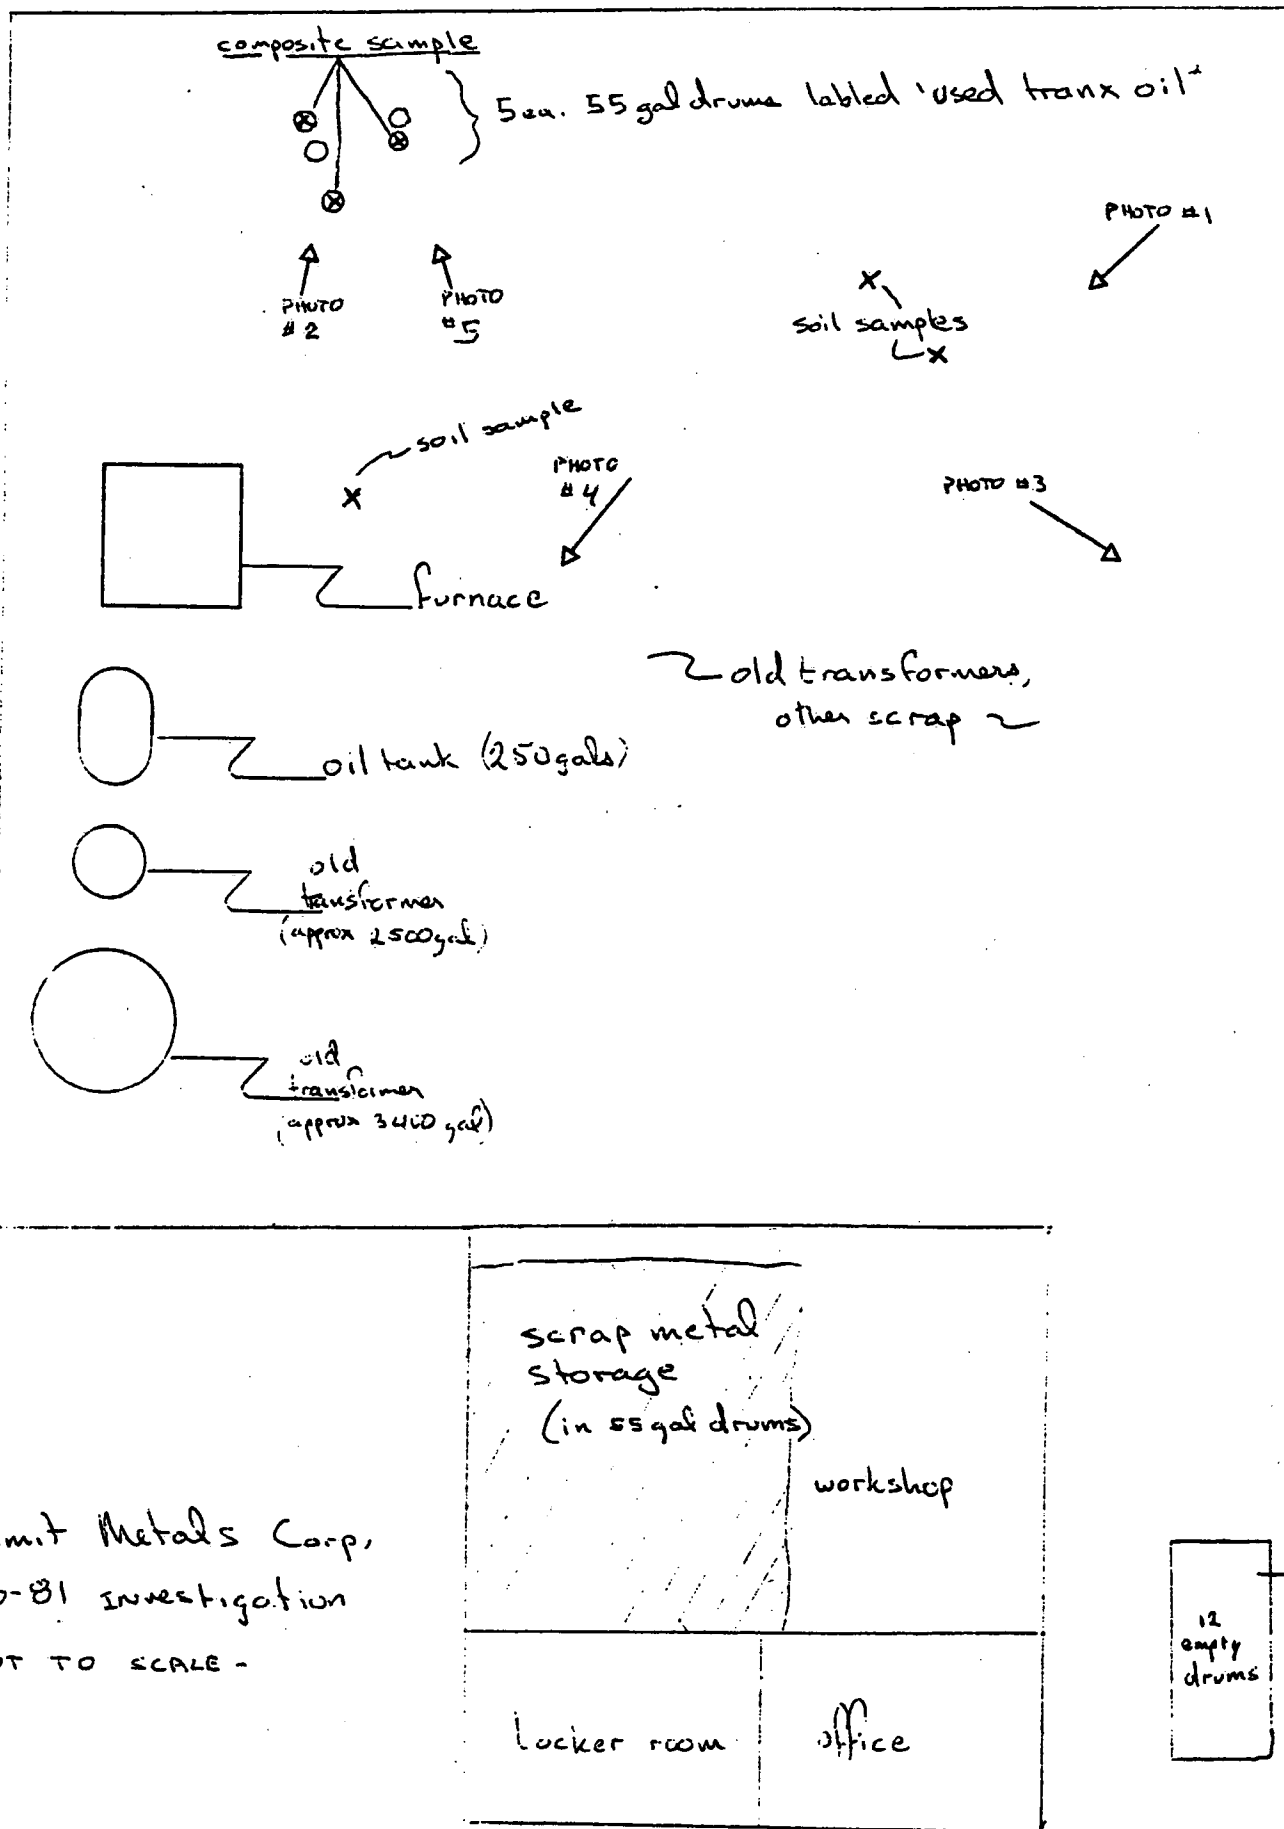 composite sample
5 ea. 55 gal drums labled 'used tranx oil"
PHOTO #1
PHOTO
#2
PHOTO
#5
soil samples
soil sample
PHOTO
#4
PHOTO #3
furnace
old transformers,
other scrap
oil tank (250 gals)
old
transformer
(approx 2500 gal)
old
transformer
(approx gal)
scrap metal
storage
(in 55 gal drums)
workshop
mit Metals Corp.
-81 Investigation
OT TO SCALE -
12
empty
drums
locker room
office